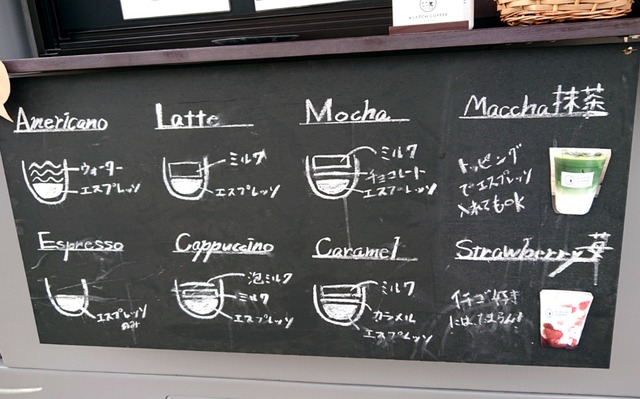 Americano
ウォーター
エスプレッソ
Latte
ミルク
エスプレッソ
Mocha
ミルク
チョコレート
エスプレッソ
Maccha 抹茶
トッピング
でエスプレッソ
入れてもOK
Espresso
エスプレッソ
のみ
Cappuccino
泡ミルク
ミルク
エスプレッソ
Caramel
ミルク
カラメル
エスプレッソ
Strawberry 苺
イチゴ好き
にはたまらん!